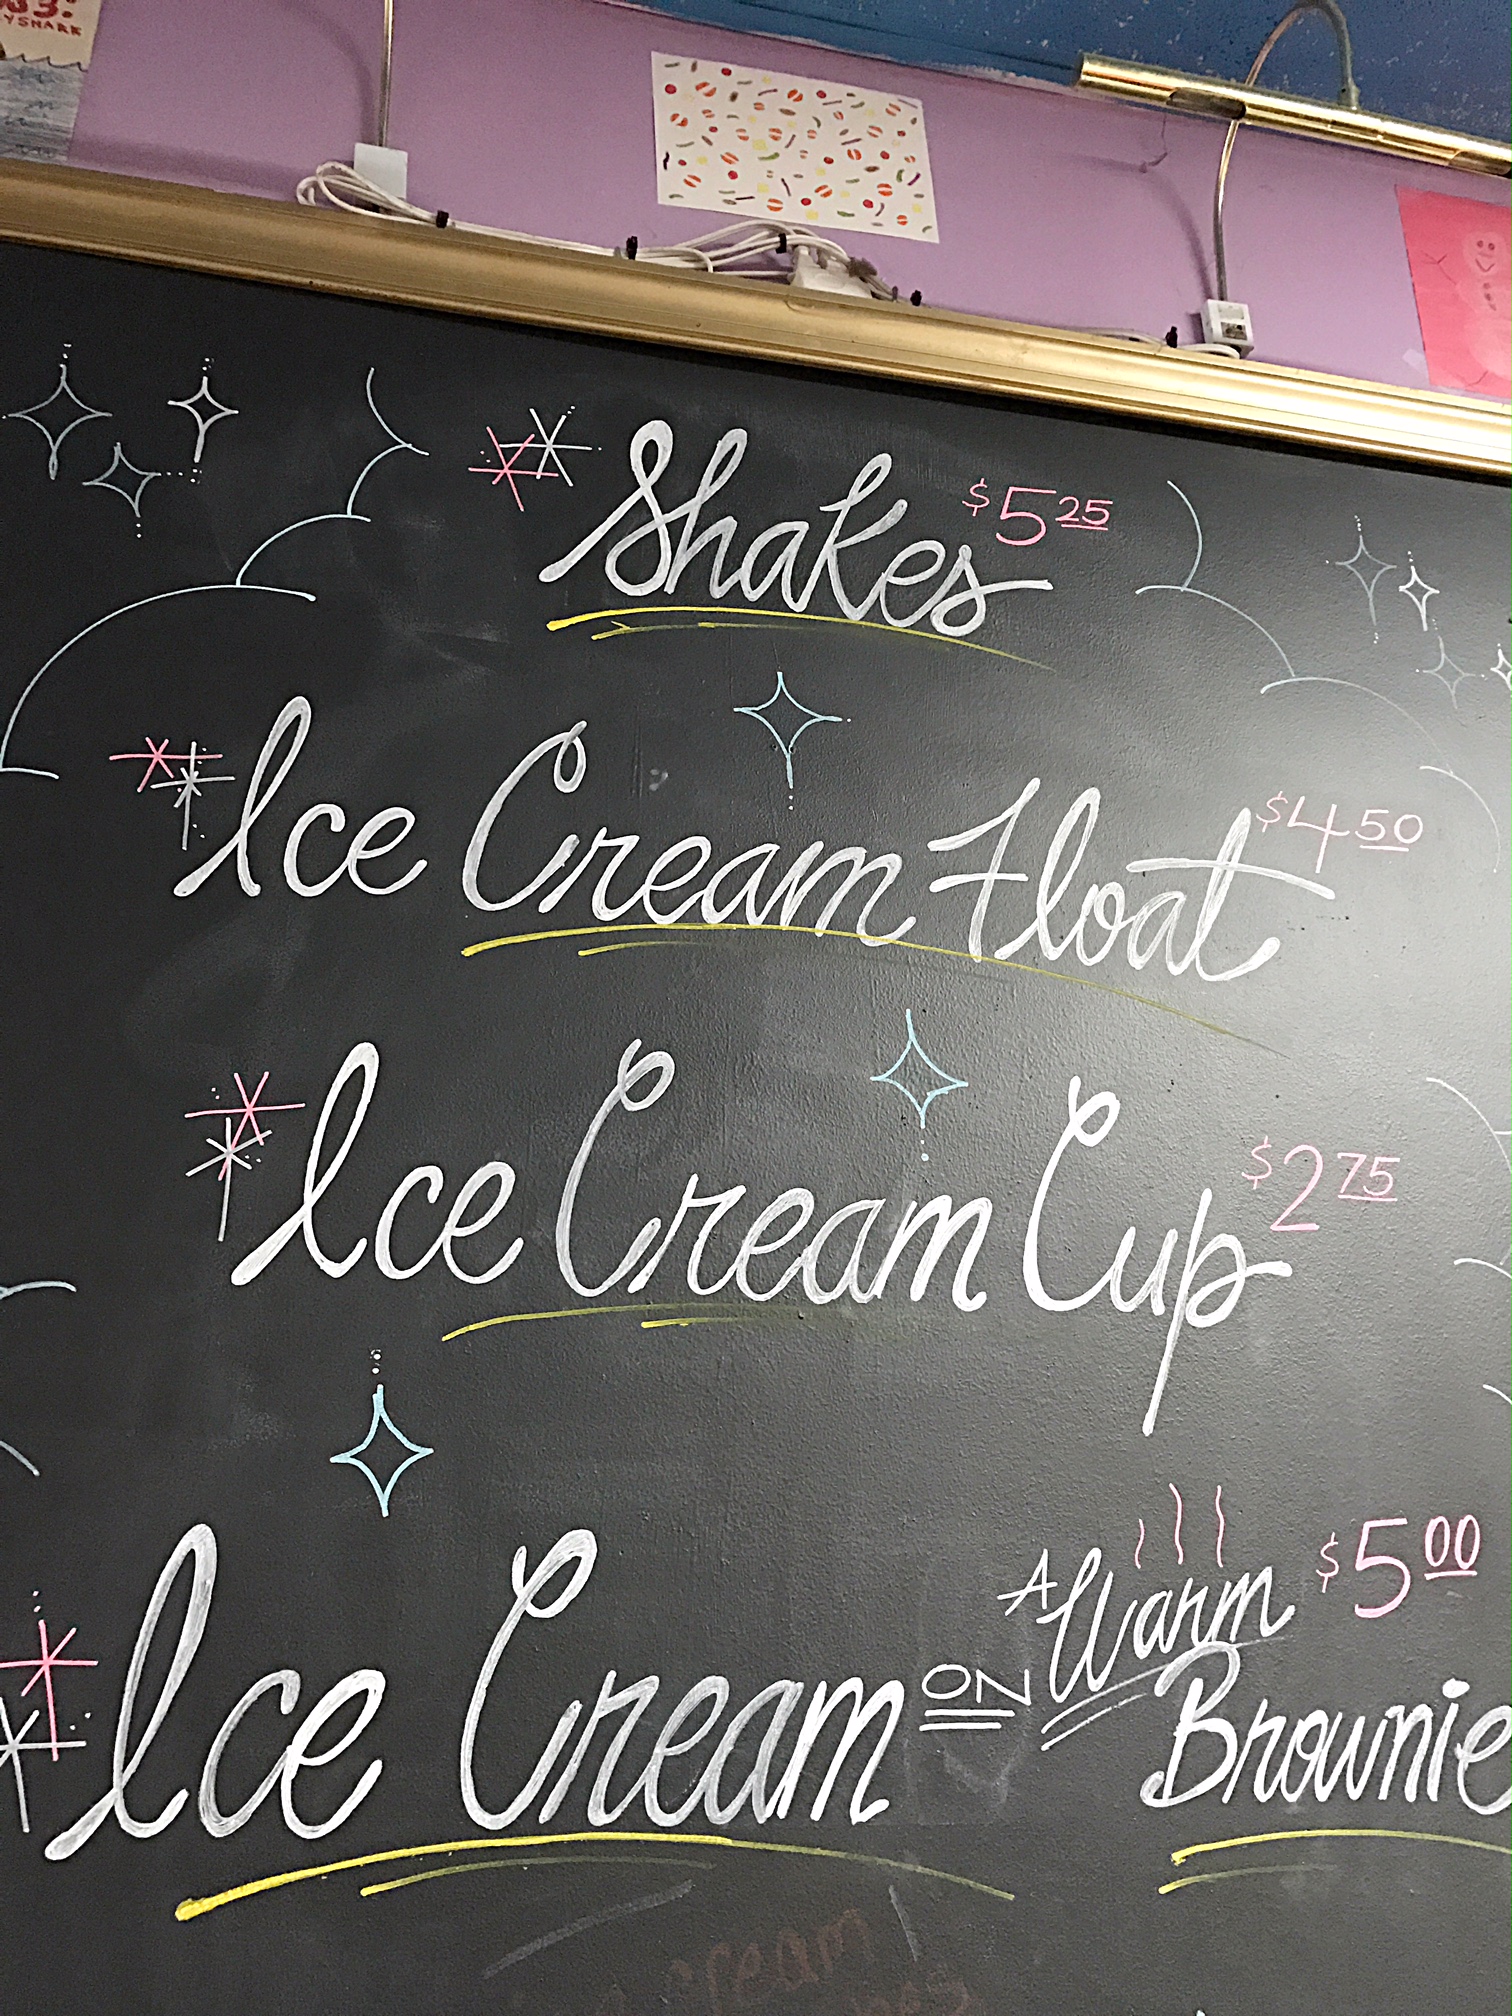 YSHARK
Shakes $5 25
Ice Cream Float $4 50
Ice Cream Cup $2 75
Ice Cream ON A Warm Brownie $5 00
cream